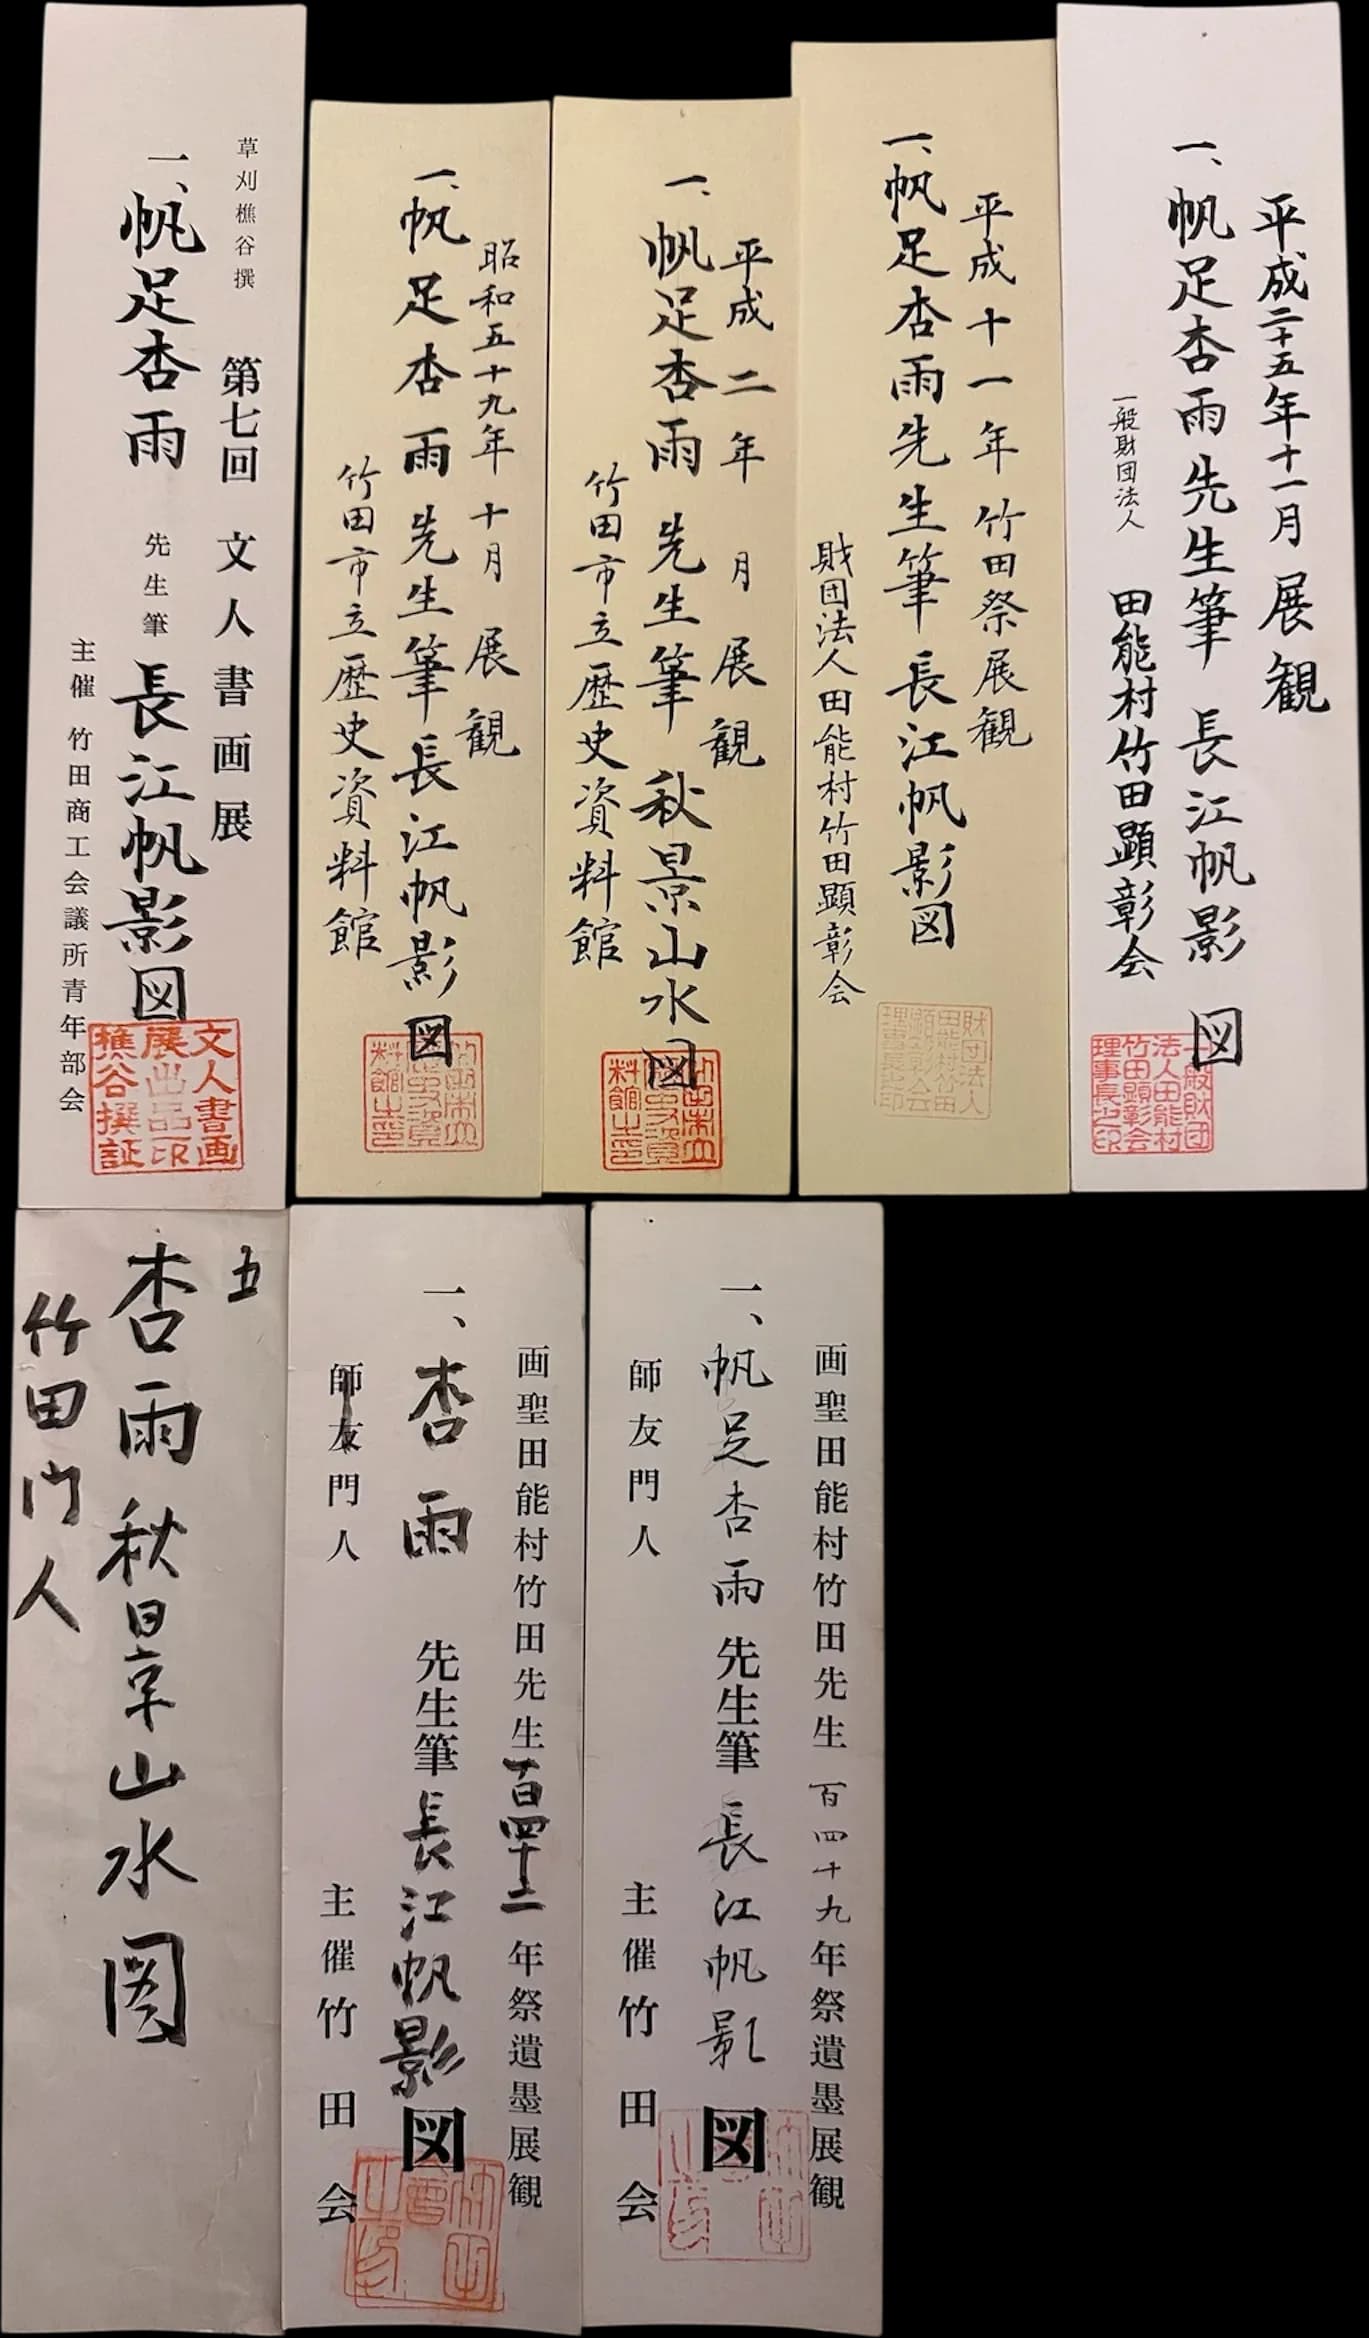 草刈樵谷撰 第七回 文人書画展
一、帆足杏雨 先生筆 長江帆影図
主催 竹田商工会議所青年部会
文人書画
展出品印
樵谷撰証
昭和五十九年十月 展観
一、帆足杏雨先生筆 長江帆影図
竹田市立歴史資料館
平成二年 月 展観
一、帆足杏雨先生筆 秋景山水図
竹田市立歴史資料館
平成十一年 竹田祭展観
一、帆足杏雨先生筆 長江帆影図
財団法人田能村竹田顕彰会
財団法人
田能村竹田
顕彰会
理事長之印
平成二十五年十一月 展観
一、帆足杏雨先生筆 長江帆影図
一般財団法人 田能村竹田顕彰会
一般財団
法人田能村
竹田顕彰会
理事長之印
五
杏雨秋景山水図
竹田門人
画聖田能村竹田先生百四十二年祭遺墨展観
一、杏雨 先生筆 長江帆影図
師友門人 主催竹田会
画聖田能村竹田先生百四十九年祭遺墨展観
一、帆足杏雨 先生筆 長江帆影図
師友門人 主催竹田会